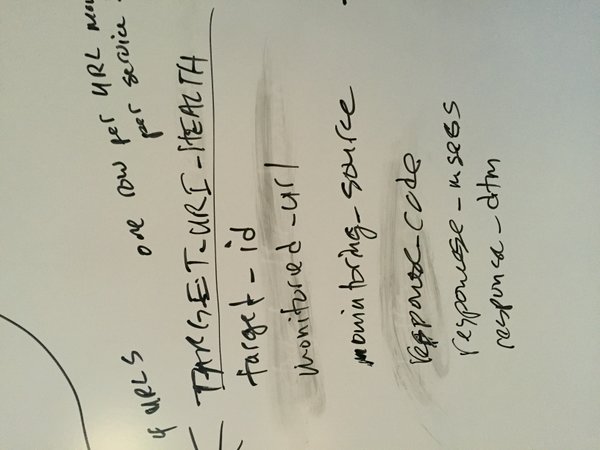 one row per URL
per service
of URLS
TARGET_URI_HEALTH
target_id
monitored_url
monitoring_source
response_code
response_msecs
response_dtm